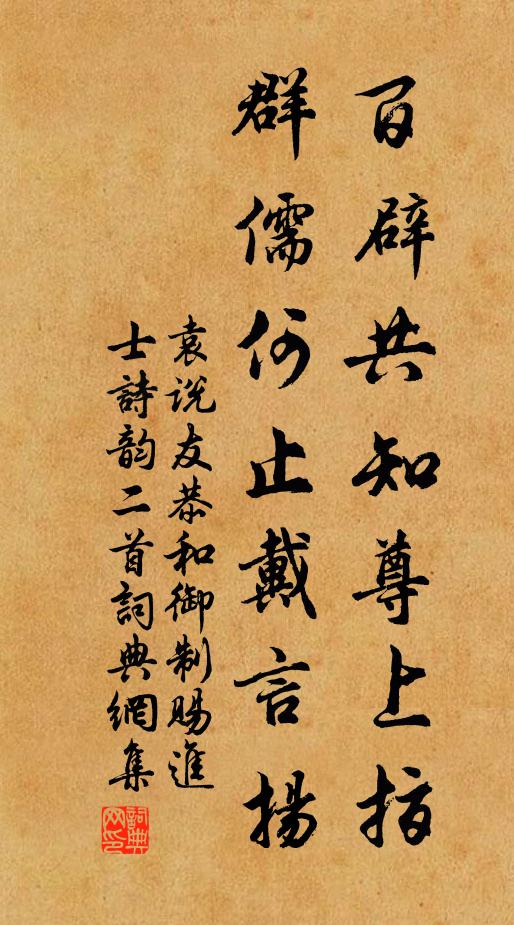 百辟共知尊上指
群儒何止戴言揚
袁说友恭和御制賜進
士詩韵二首詞典網集
詞典网印